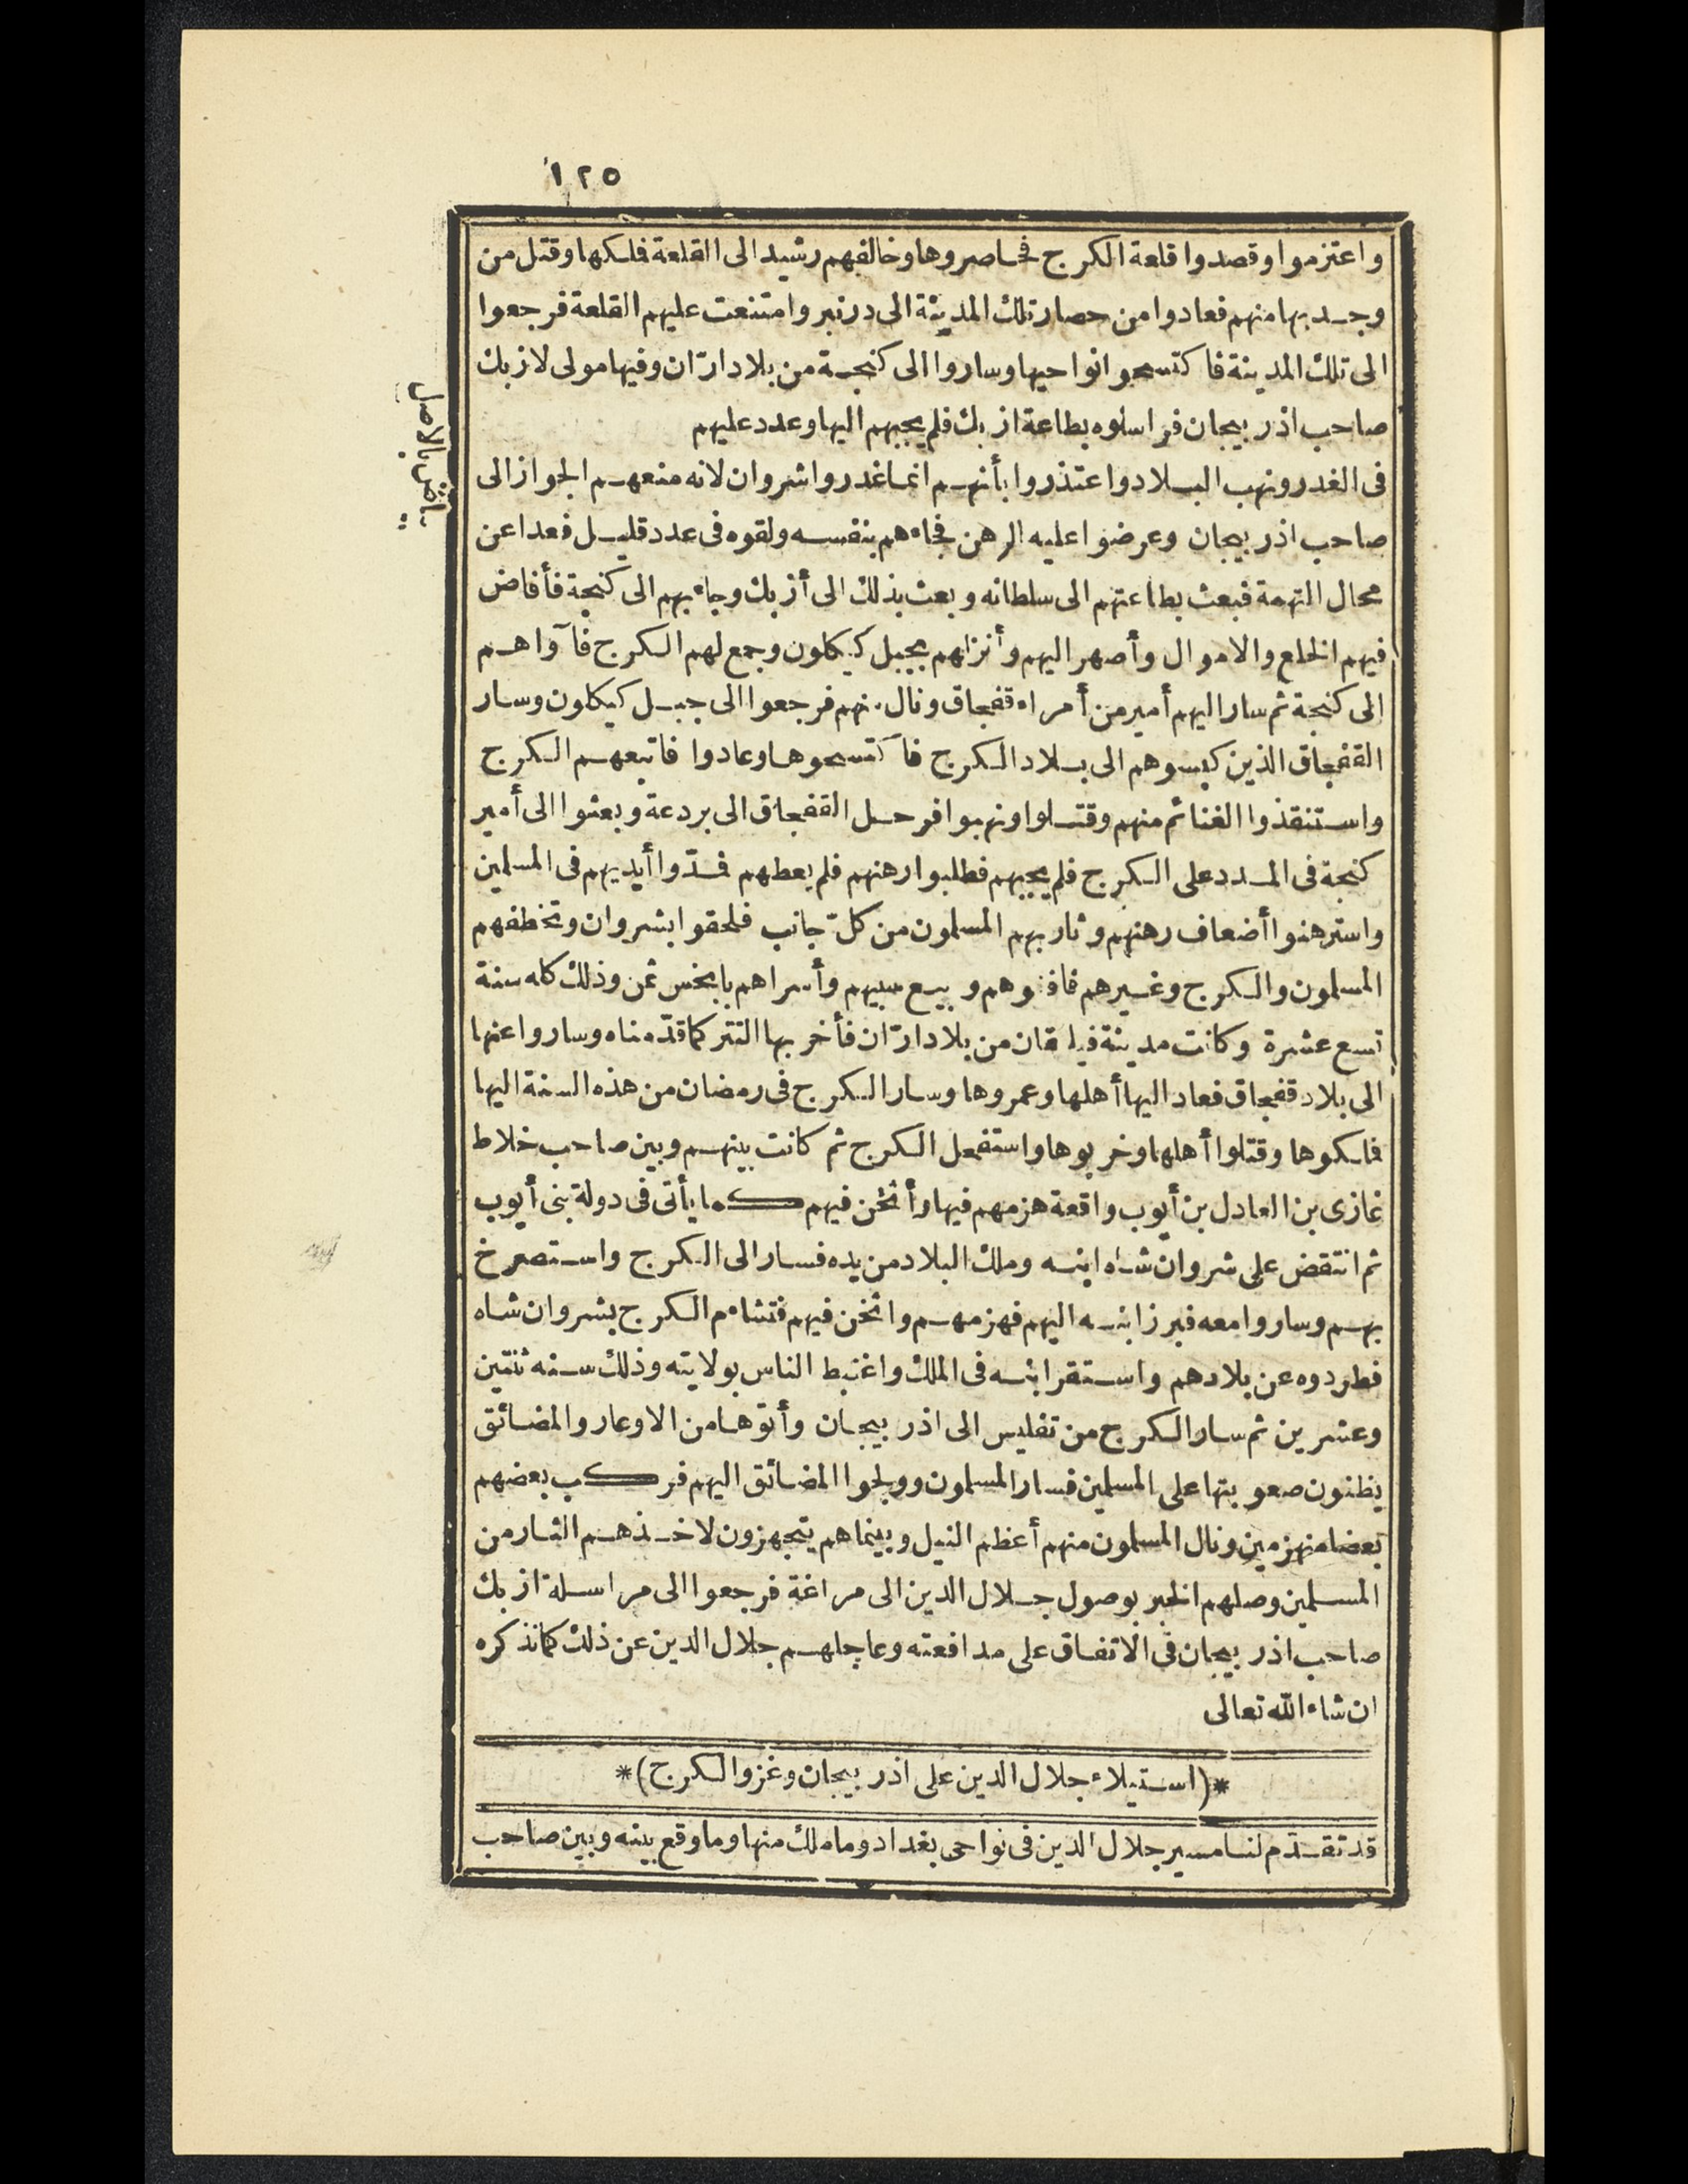 ١٢٥
واعتزموا وقصدوا قلعة الكرج فحاصروها وخالفهم رشيد الى القلعة فملكها وقتل من
وجد بها منهم فعادوا من حصار تلك المدينة الى دربنر وامتنعت عليهم القلعة فرجعوا
الى تلك المدينة فاكتسحوا نواحيها وساروا الى كنجة من بلاد ارّان وفيها مولى لازبك
صاحب اذربيجان فراسلوه بطاعة ازبك فلم يجبهم اليها وعدد عليهم
بياض بالاصل
فى الغدر ونهب البلاد واعتذروا بأنهم انما غدروا شروان لانه منعهم الجواز الى
صاحب اذربيجان وعرضوا عليه الرهن فجاءهم بنفسه ولقوه فى عدد قليل فعدا عن
محال التهمة فبعث بطاعتهم الى سلطانه وبعث بذلك الى أزبك وجاء بهم الى كنجة فأفاض
فيهم الخلع والاموال وأصهر اليهم وأنزلهم بجبل كيكلون وجمع لهم الكرج فآواهم
الى كنجة ثم سار اليهم أمير من أمراء قفجاق ونال منهم فرجعوا الى جبل كيكلون وسار
القفجاق الذين كبسوهم الى بلاد الكرج فاكتسحوها وعادوا فاتبعهم الكرج
واستنقذوا الغنائم منهم وقتلوا ونهبوا فرحل القفجاق الى بردعة وبعثوا الى أمير
كنجة فى المدد على الكرج فلم يجبهم فطلبوا رهنهم فلم يعطهم فمدّوا أيديهم فى المسلمين
واسترهنوا أضعاف رهنهم وثار بهم المسلمون من كلّ جانب فلحقوا بشروان وتخطفهم
المسلمون والكرج وغيرهم فافنوهم وبيع سبيهم وأسراهم بابخس ثمن وذلك كله سنة
تسع عشرة وكانت مدينة فيلقان من بلاد ارّان فأخربها التتر كما قدّمناه وساروا عنها
الى بلاد قفجاق فعاد اليها أهلها وعمروها وسار الكرج فى رمضان من هذه السنة اليها
فملكوها وقتلوا أهلها وخربوها واستفحل الكرج ثم كانت بينهم وبين صاحب خلاط
غازى بن العادل بن أيوب واقعة هزمهم فيها وأثخن فيهم كما يأتى فى دولة بنى أيوب
ثم انتقض على شروان شاه ابنه وملك البلاد من يده فسار الى الكرج واستصرخ
بهم وساروا معه فبرز ابنه اليهم فهزمهم واثخن فيهم فتشاءم الكرج بشروان شاه
فطردوه عن بلادهم واستقر ابنه فى الملك واغتبط الناس بولايته وذلك سنه ثنتين
وعشرين ثم سار الكرج من تفليس الى اذربيجان وأتوها من الاوعار والمضائق
يظنون صعوبتها على المسلمين فسار المسلمون وولجوا المضائق اليهم فركب بعضهم
بعضا منهزمين ونال المسلمون منهم أعظم النيل وبينما هم يتجهزون لاخذهم الثار من
المسلمين وصلهم الخبر بوصول جلال الدين الى مراغة فرجعوا الى مراسلة ازبك
صاحب اذربيجان فى الاتفاق على مدافعته وعاجلهم جلال الدين عن ذلك كما نذكره
ان شاء الله تعالى
*(استيلاء جلال الدين على اذربيجان وغزو الكرج)*
قد تقدّم لنا مسير جلال الدين فى نواحى بغداد وما ملك منها وما وقع بينه وبين صاحب